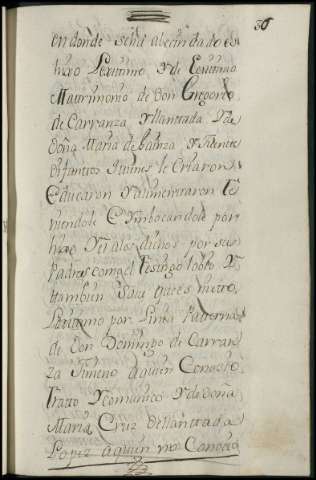 36
en donde se ha abecindado es
hixo Lexitimo y de Lexitimo
Matrimonio de Don Gregorio
de Carranza y llantada y de
Doña Maria de y thenite
Ynfantios quines le Criaron
Educaron y alimentaron te
niendole e Ymbocandole por
hixo y el a los dichos por sus
Padres como el testigo lo bio y
tambien save que es nieto
Lexitimo por Linea Paterna
de Don Domingo de Carran
za Ximeno a quien Conocio
trato y comunico y de Doña
Maria Cruz de llantada
Lopez a quien no Conocio